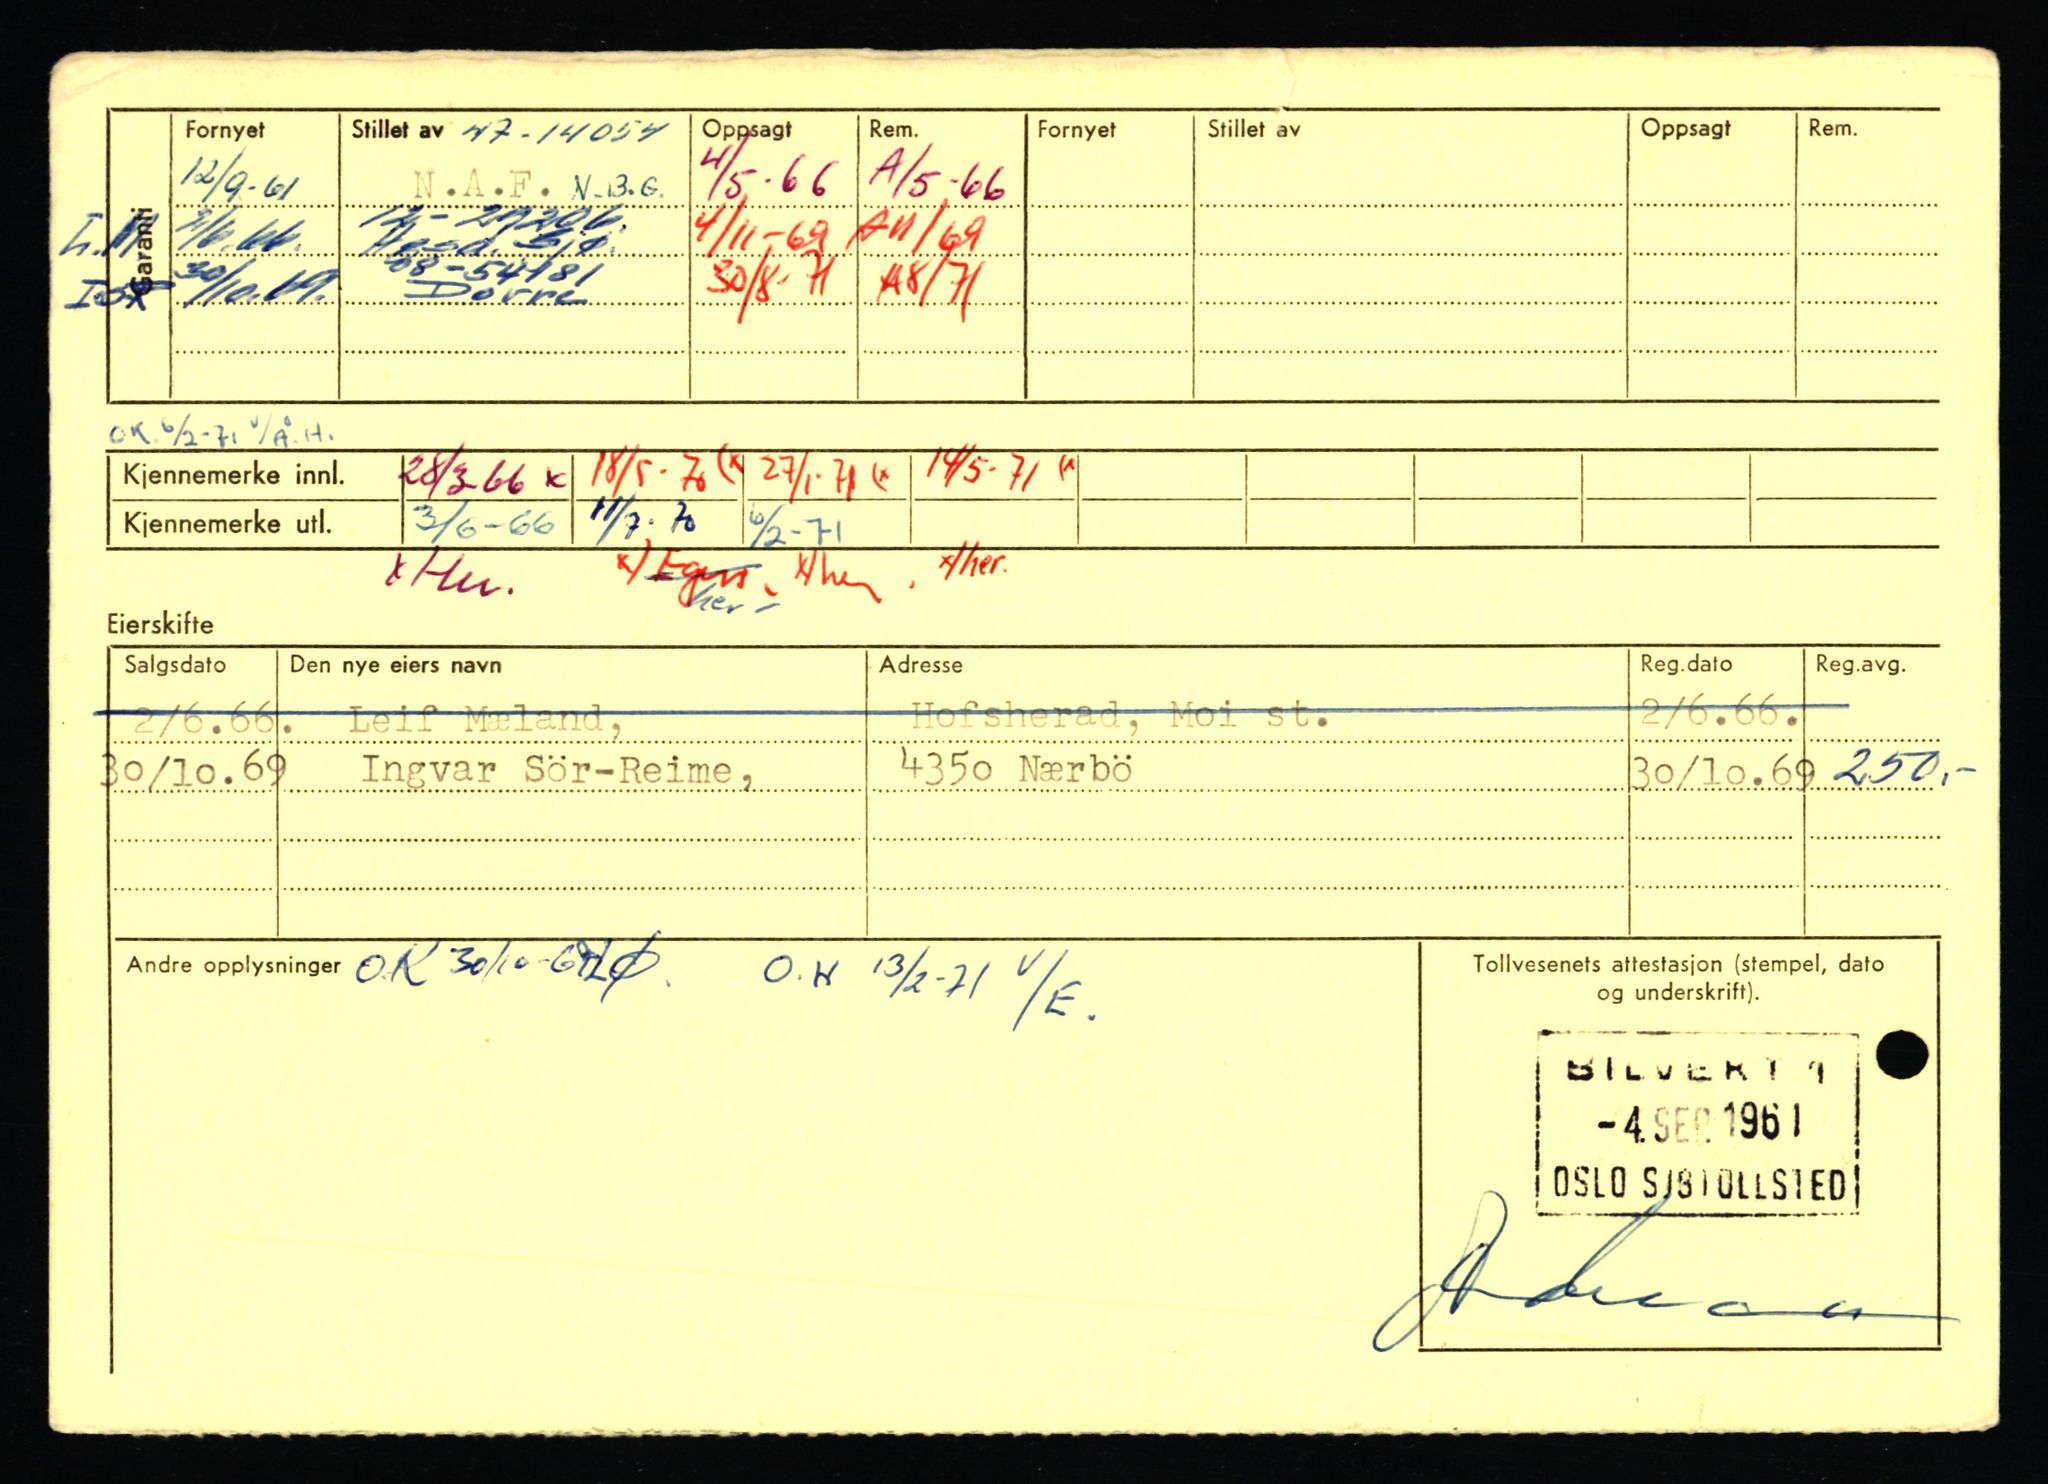 Garanti
Fornyet Stillet av 47-14054 Oppsagt Rem. Fornyet Stillet av Oppsagt Rem.
12/9-61 N.A.F. N.B.G. 4/5-66 A/5-66
2/6.66. 4/11-69 A11/69
30/10.69. 68-54181 30/8-71 A8/71
OK. 6/2-71 v/Å.H.
Kjennemerke innl. 28/3-66 x 18/5-70 (x 27/1-71 (x 14/5-71 (x
Kjennemerke utl. 3/6-66 11/7-70 6/2-71
x) x/her. x/her.
her
Eierskifte
Salgsdato Den nye eiers navn Adresse Reg.dato Reg.avg.
2/6.66. Leif Mæland, Hofsherad, Moi st. 2/6.66.
30/10.69 Ingvar Sör-Reime, 4350 Nærbö 30/10.69 250,-
Andre opplysninger O.K 30/10-69 O.K 13/2-71 v/E.
Tollvesenets attestasjon (stempel, dato
og underskrift).
-4. SEP. 1961
OSLO SJØTOLLSTED